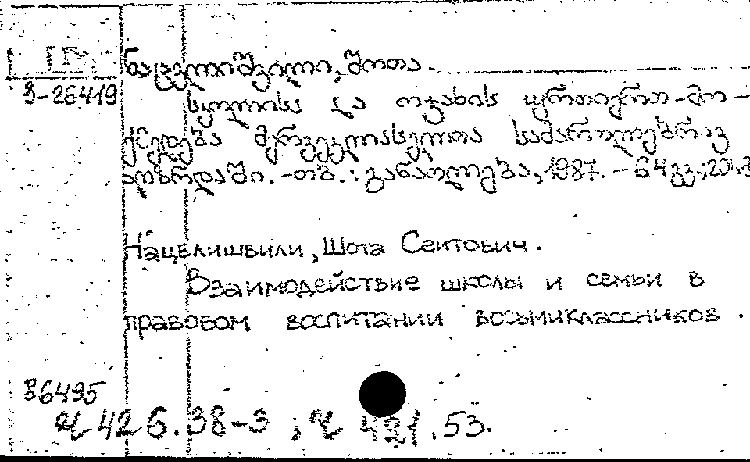 ნაცვლიშვილი, შოთა.
З-26419
სკოლისა და ოჯახის ურთიერთ-მო-
ქმედება მერვეკლასელთა სამართლებრივ
აღზრდაში. -თბ.: განათლება, 1987. – 64გვ.; 20სმ
Нацвлишвили, Шота Сеитович.
Взаимодействие школы и семьи в
правовом воспитании восьмиклассников.
86495
421.53.